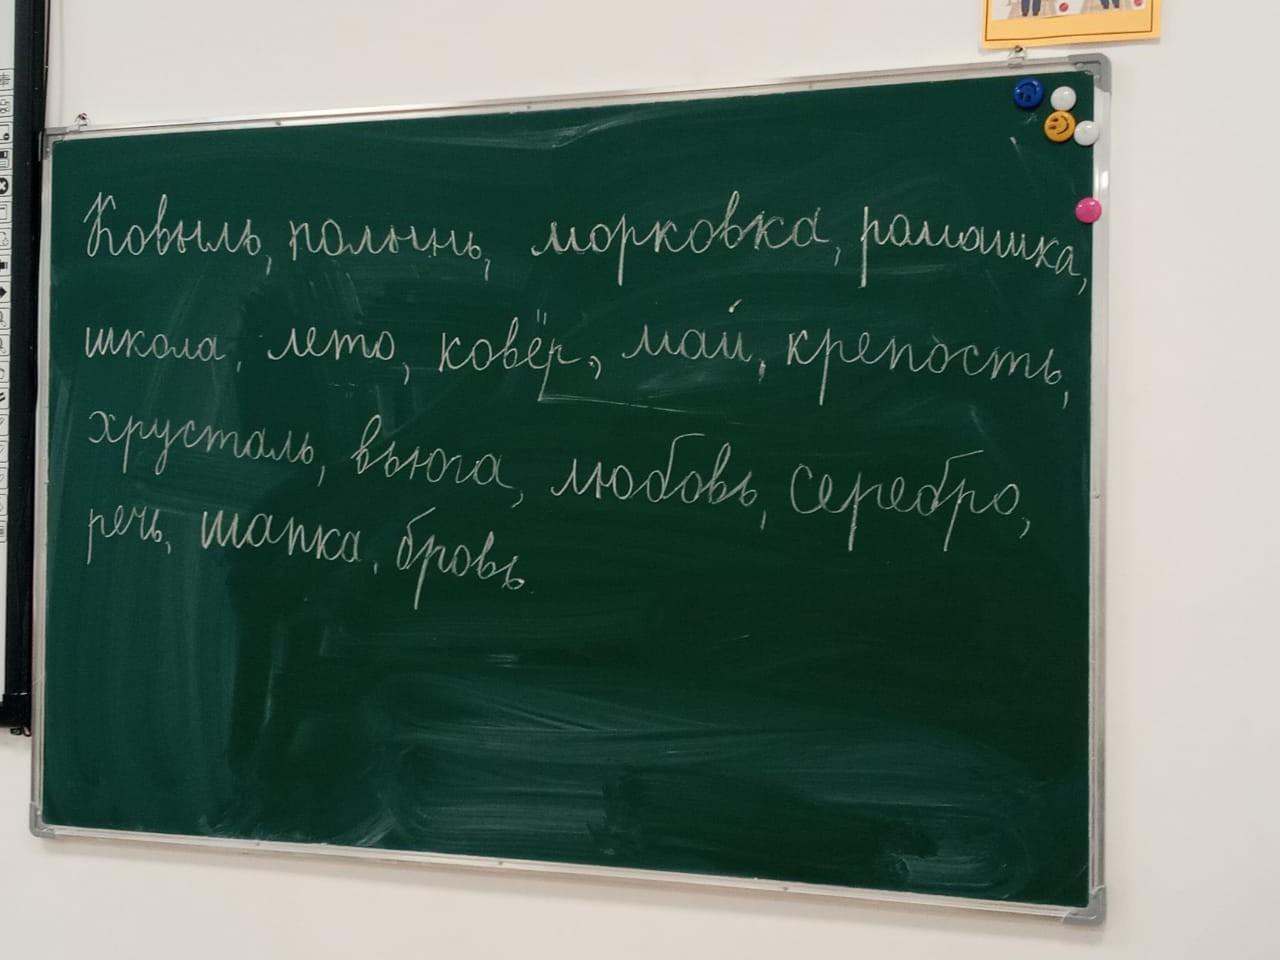 Ковыль, полынь, морковка, ромашка,
школа, лето, ковёр, май, крепость,
хрусталь, вьюга, любовь, серебро,
речь, шапка, бровь